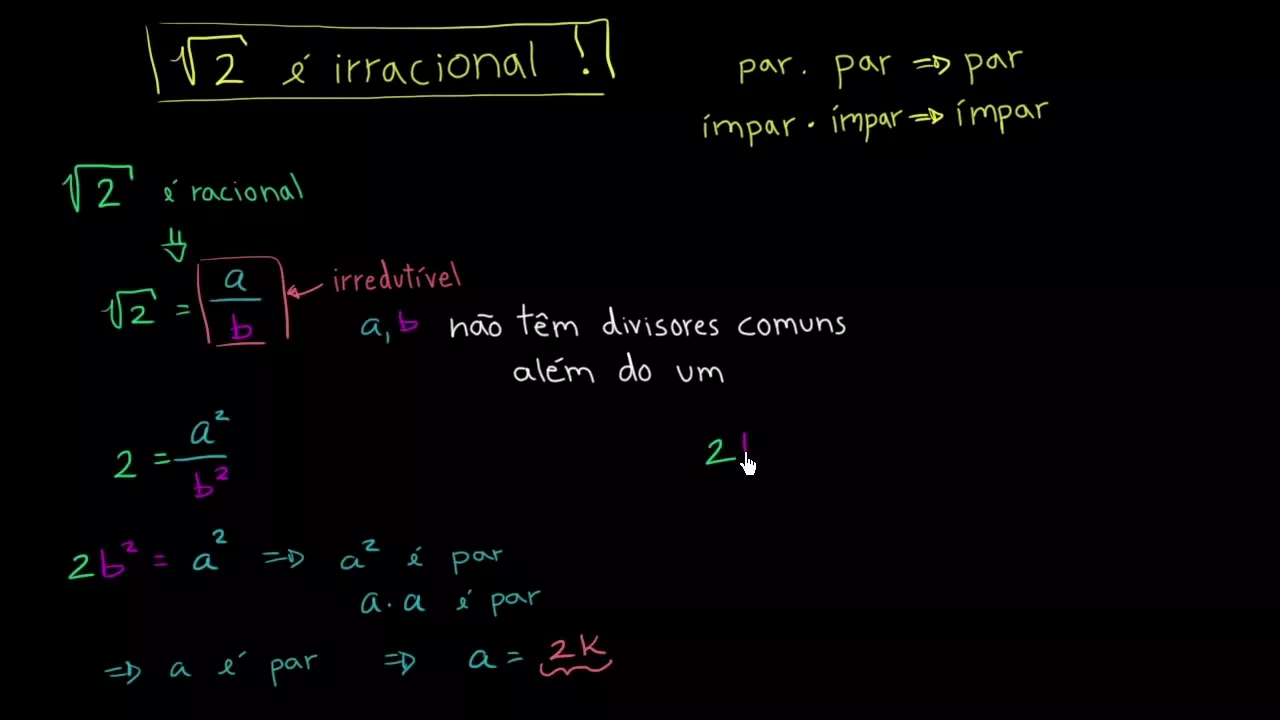 √2 é irracional !
par . par ⇒ par
ímpar · ímpar ⇒ ímpar
√2 é racional
⇓
√2 = a/b ← irredutível
a, b não têm divisores comuns
além do um
2 = a²/b²
2
2b² = a² ⇒ a² é par
a · a é par
⇒ a é par ⇒ a = 2K